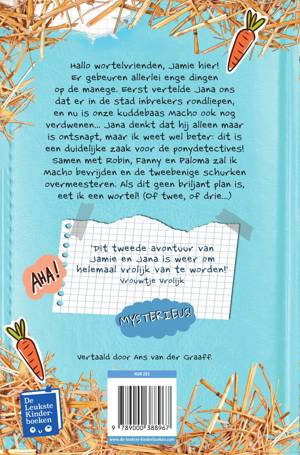 Hallo wortelvrienden, Jamie hier!
Er gebeuren allerlei enge dingen
op de manege. Eerst vertelde Jana ons
dat er in de stad inbrekers rondliepen,
en nu is onze kuddebaas Macho ook nog
verdwenen... Jana denkt dat hij alleen maar
is ontsnapt, maar ik weet wel beter: dit is
een duidelijke zaak voor de ponydetectives!
Samen met Robin, Fanny en Paloma zal ik
Macho bevrijden en de tweebenige schurken
overmeesteren. Als dit geen briljant plan is,
eet ik een wortel! (Of twee, of drie...)
'Dit tweede avontuur van
Jamie en Jana is weer om
helemaal vrolijk van te worden!'
Vrouwtje Vrolijk
AHA!
MYSTERIEUS!
Vertaald door Ans van der Graaff.
De
Leukste
Kinder-
boeken
NUR 282
9 789000 388967
www.de-leukste-kinderboeken.com